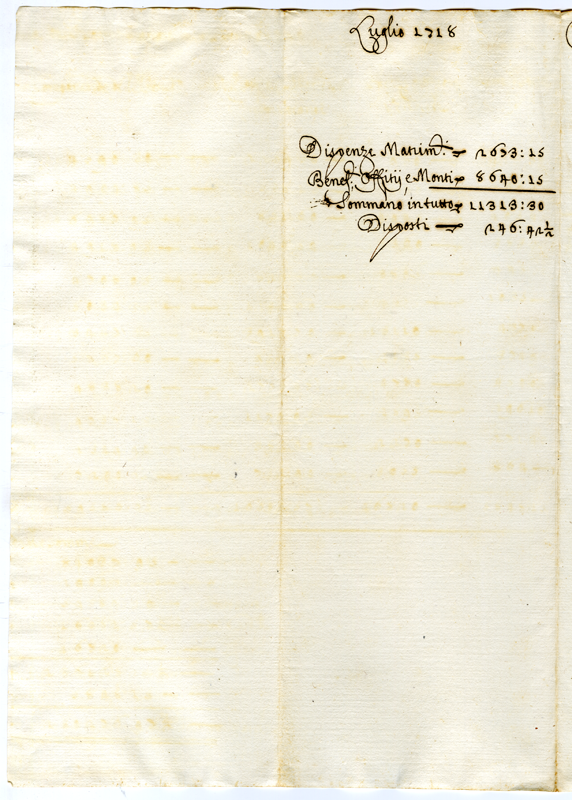 Luglio 1718
Dispenze Matrim: 2673:15
Benef: Offitij e Monti 8640:15
Sommano in tutto 11313:30
Disposti 246:42½